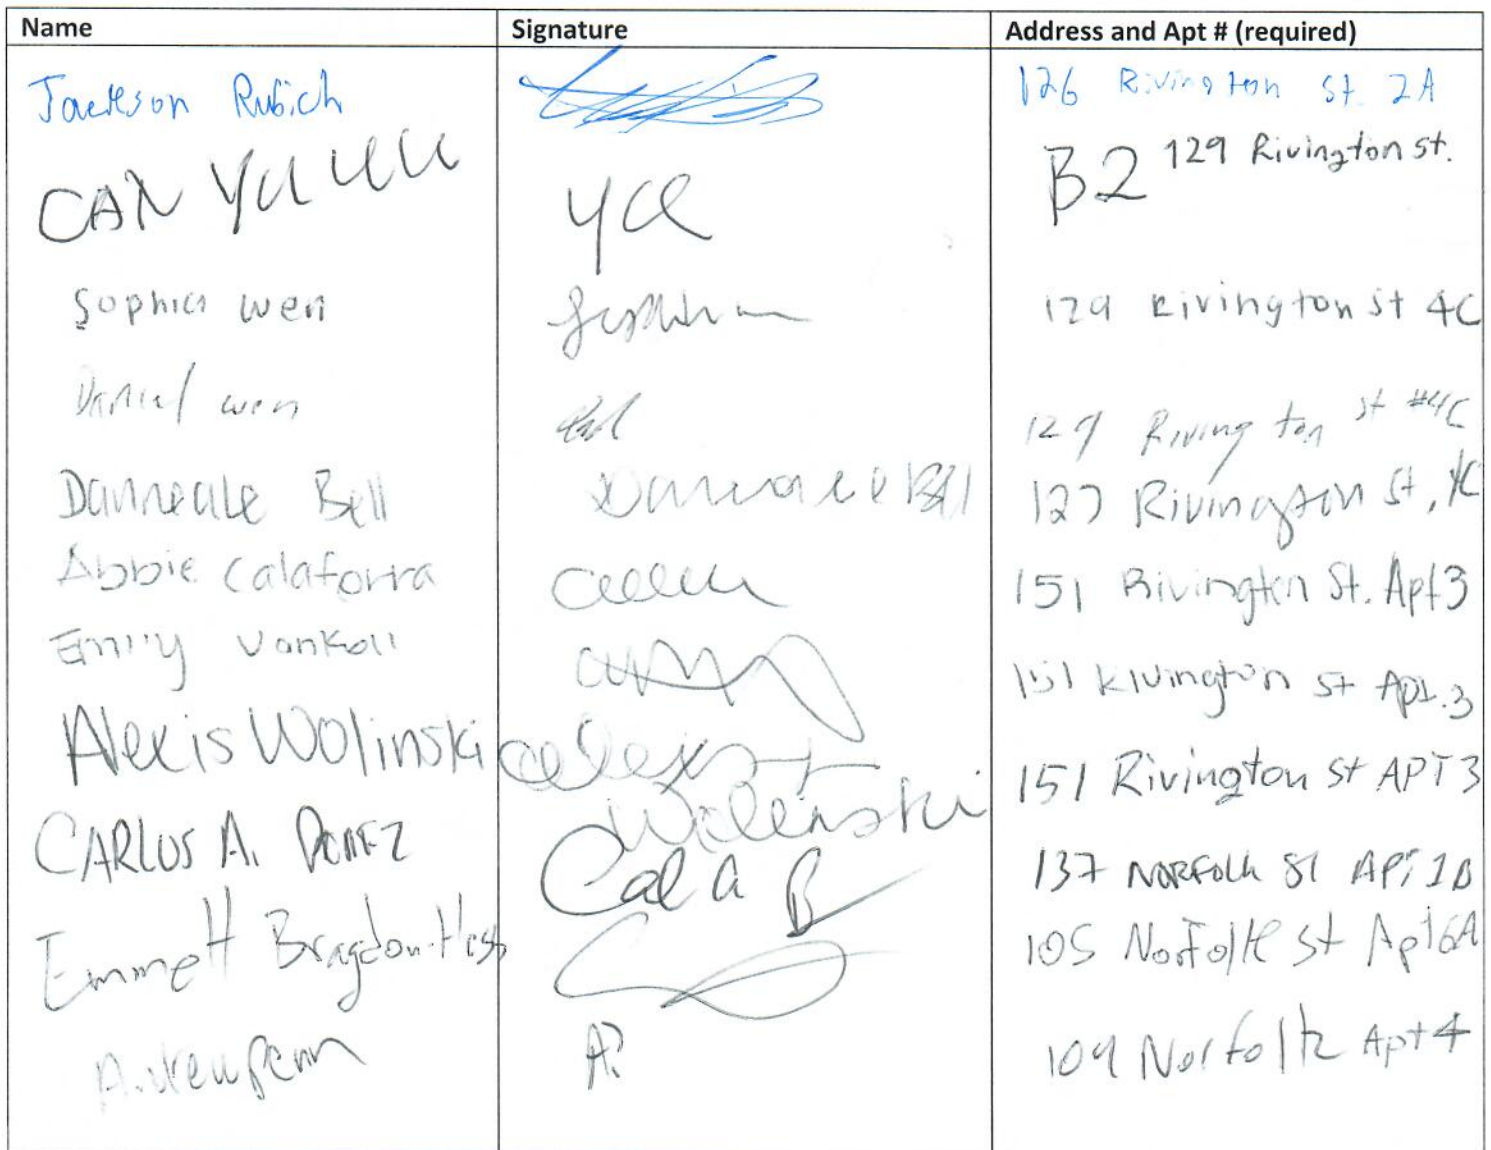 Name Signature Address and Apt # (required)
Jackson Rubich 126 Rivington St. 2A
CAN B2 129 Rivington St.
Sophia Wen 129 Rivington St 4C
Daniel Wen 129 Rivington St #4C
Danneale Bell Danneale Bell 127 Rivington St,
Abbie Calaforra 151 Rivington St. Apt 3
Emily Vankoll 151 Rivington St Apt. 3
Alexis Wolinski Alexis Wolinski 151 Rivington St APT 3
CARLOS A. 137 NORFOLK St APT
Emmett Bragdon-Hess 105 Norfolk St Apt 6A
Andrew Penn 109 Norfolk Apt 4